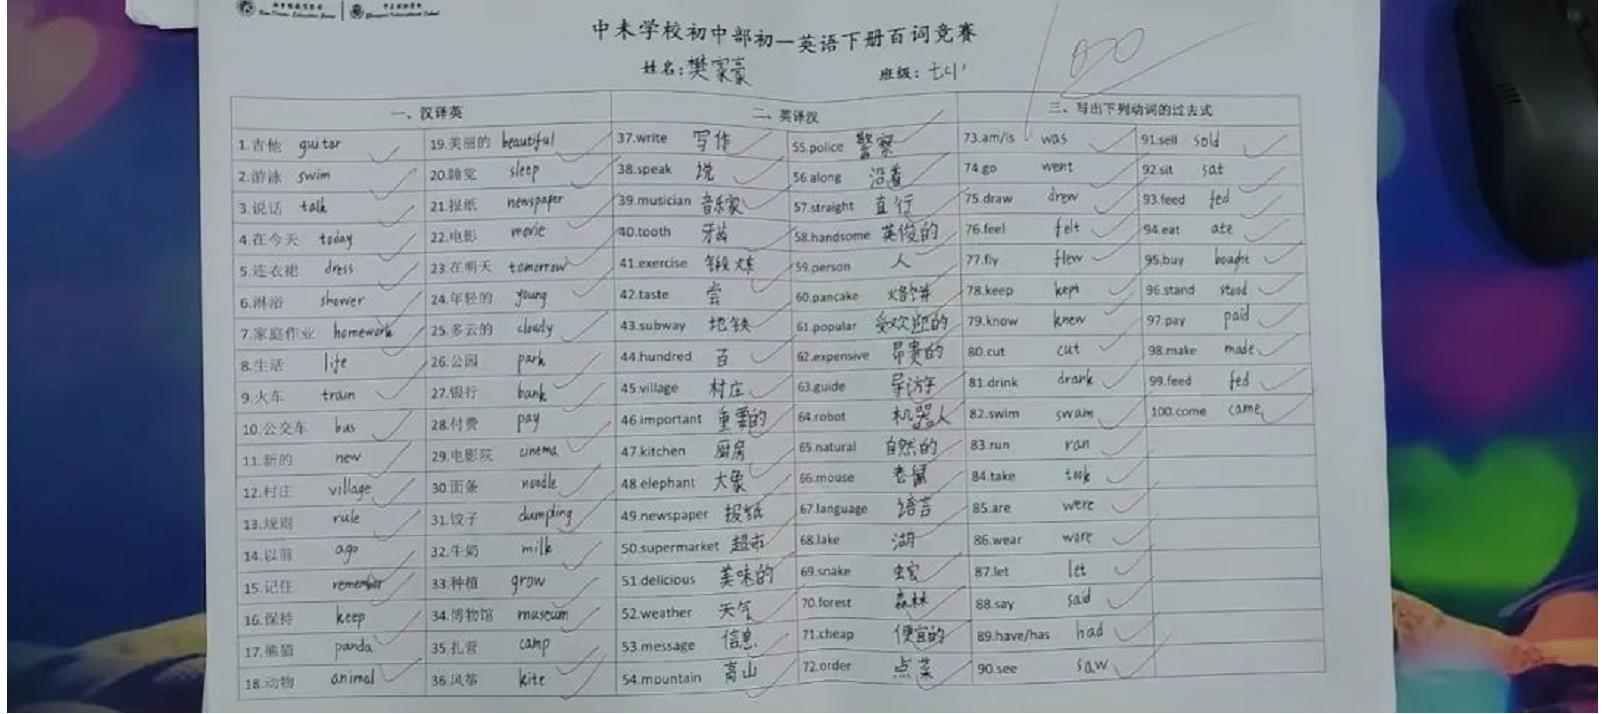 中未学校初中部初一英语下册百词竞赛
100
姓名:樊家豪 班级:七(1)
一、汉译英 二、英译汉 三、写出下列动词的过去式
1.吉他 guitar 19.美丽的 beautiful 37.write 写作 55.police 警察 73.am/is was 91.sell sold
2.游泳 swim 20.睡觉 sleep 38.speak 说 56.along 沿着 74.go went 92.sit sat
3.说话 talk 21.报纸 newspaper 39.musician 音乐家 57.straight 直行 75.draw drew 93.feed fed
4.在今天 today 22.电影 movie 40.tooth 牙齿 58.handsome 英俊的 76.feel felt 94.eat ate
5.连衣裙 dress 23.在明天 tomorrow 41.exercise 锻炼 59.person 人 77.fly flew 95.buy bought
6.淋浴 shower 24.年轻的 young 42.taste 尝 60.pancake 烙饼 78.keep kept 96.stand stood
7.家庭作业 homework 25.多云的 cloudy 43.subway 地铁 61.popular 受欢迎的 79.know knew 97.pay paid
8.生活 life 26.公园 park 44.hundred 百 62.expensive 昂贵的 80.cut cut 98.make made
9.火车 train 27.银行 bank 45.village 村庄 63.guide 导游 81.drink drank 99.feed fed
10.公交车 bus 28.付费 pay 46.important 重要的 64.robot 机器人 82.swim swam 100.come came
11.新的 new 29.电影院 cinema 47.kitchen 厨房 65.natural 自然的 83.run ran
12.村庄 village 30.面条 noodle 48.elephant 大象 66.mouse 老鼠 84.take took
13.规则 rule 31.饺子 dumpling 49.newspaper 报纸 67.language 语言 85.are were
14.以前 ago 32.牛奶 milk 50.supermarket 超市 68.lake 湖 86.wear wore
15.记住 remember 33.种植 grow 51.delicious 美味的 69.snake 蛇 87.let let
16.保持 keep 34.博物馆 museum 52.weather 天气 70.forest 森林 88.say said
17.熊猫 panda 35.扎营 camp 53.message 信息 71.cheap 便宜的 89.have/has had
18.动物 animal 36.风筝 kite 54.mountain 高山 72.order 点菜 90.see saw